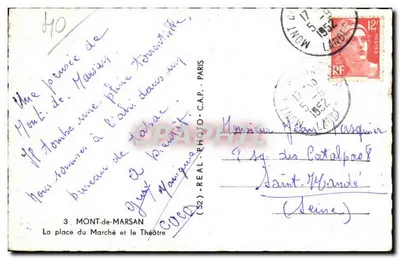 40
Une pensée de
Mont-de-Marsan
Il tombe une pluie torrentielle,
Nous sommes à l'abri dans un
bureau de tabac
à bientôt
Guy
COCO
3. MONT-de-MARSAN
La place du Marché et le Théâtre
(52) - REAL - PHOTO - C.A.P. - PARIS
MONT D
17
5
1952
LANDES
12F
RF
17
5
1952
Monsieur Jean
9 sq. des Catalpas
Saint-Mandé
(Seine)